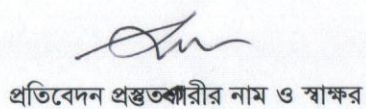 প্রতিবেদন প্রস্তুতকারীর নাম ও স্বাক্ষর